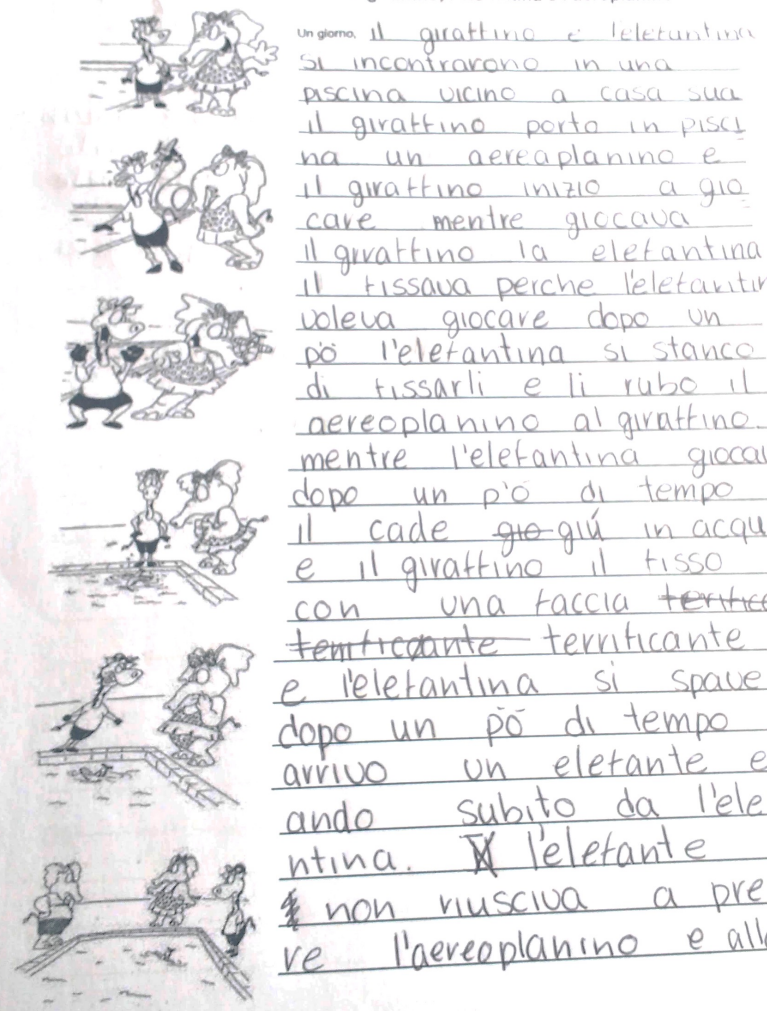 Un giorno, il giraffino e l'elefantina
si incontrarono in una
piscina vicino a casa sua
il giraffino porto in pisci
na un aereaplanino e
il giraffino inizio a gio
care mentre giocava
il giraffino la elefantina
il fissava perche l'elefantin
voleva giocare dopo un
pò l'elefantina si stanco
di fissarli e li rubo il
aereoplanino al giraffino.
mentre l'elefantina giocav
dopo un p'ò di tempo
il cade gio giú in acqu
e il giraffino il fisso
con una faccia
terrificante
e l'elefantina si spave
dopo un pò di tempo
arrivo un elefante e
ando subito da l'ele
ntina. l'elefante
non riusciva a pre
re l'aereoplanino e all